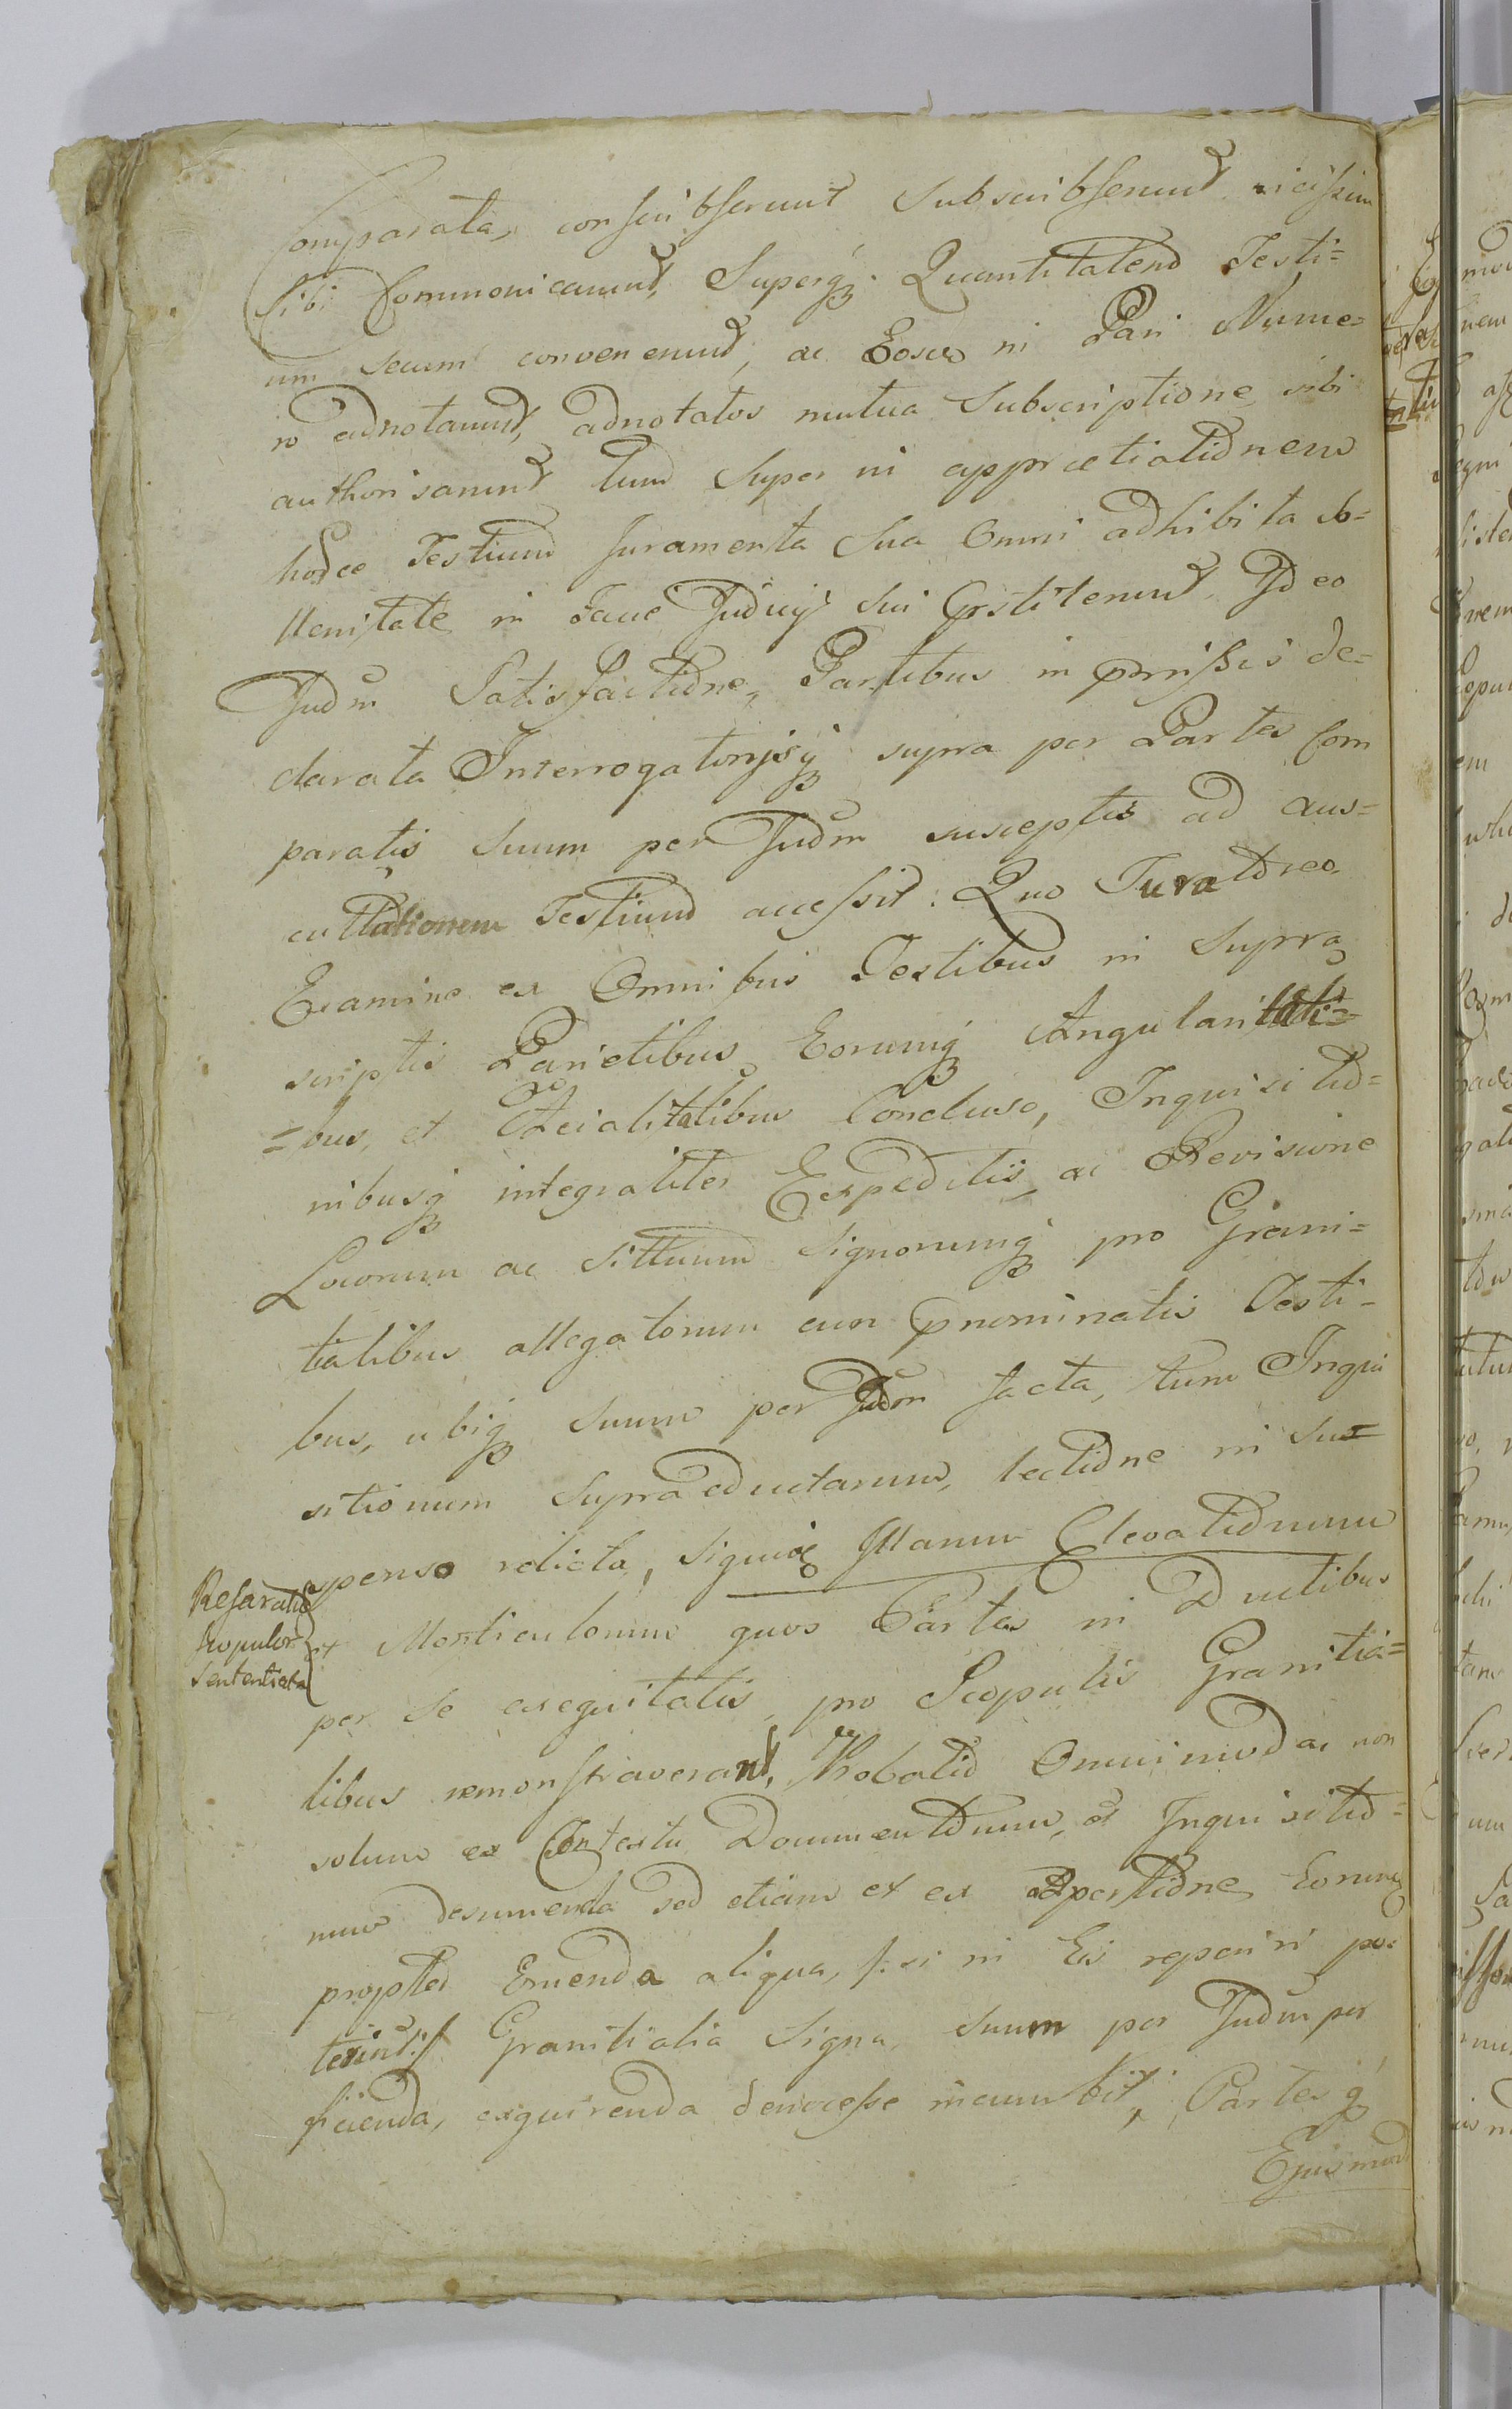 Comparata, conscribserunt Subscribserunt vicissim
Sibi Communicarunt, Superq; Quantitatem Testi=
um secum convenerunt, ac Eosce in Pari Nume=
ro adnotarunt, adnotatos mutua Subscriptione sibi
authorisarunt tum Super in appraetiationem
hosce Testium Juramenta Sua Omni adhibita So=
llenitate in Facie Judicij Sui Constiterunt. Ideo
Judm Satisfactione, Partibus in pmissis de=
clarata Interrogatorijsq; supra per Partes Com
paratis Suum per Judm susceptis ad aus=
cultationem Testium accessit. Quo Jurato reo
Examine ex Omnibus Testibus in Supra
scriptis Parietibus Eorumq; Angularitati=
=bus, et Acialitatibus Concluso, Inquisitio=
nibusq; integraliter Expeditis, ac Revisione
Locorum ac Sittuum Signorumq; pro Grani=
tialibus allegatorum cum pnominatis Testi=
bus, ubiq; Suum per Judm facta, tum Inqui
sitionum Supra eductarum, lectione in Sus=
penso relicta, Siquidem Illarum Elevationum
et Monticulorum quos Partes in Ductibus
per Se exequitatis pro Scopulis Granitia=
libus remonstraverant, Probatio Omnimoda non
solum ex Contextu Documentorum, et Inquisitio=
num desumenda sed etiam et ex Apertione Eorum
propter Eruenda aliqua, /: si in Eis reperiri po=
terint :/ Granitialia Signa, Suum per Judm per
ficienda, exquirenda denecesse incumbit, Partesq;
Ejusmod
Reseratio
Scopulor
Sententiata